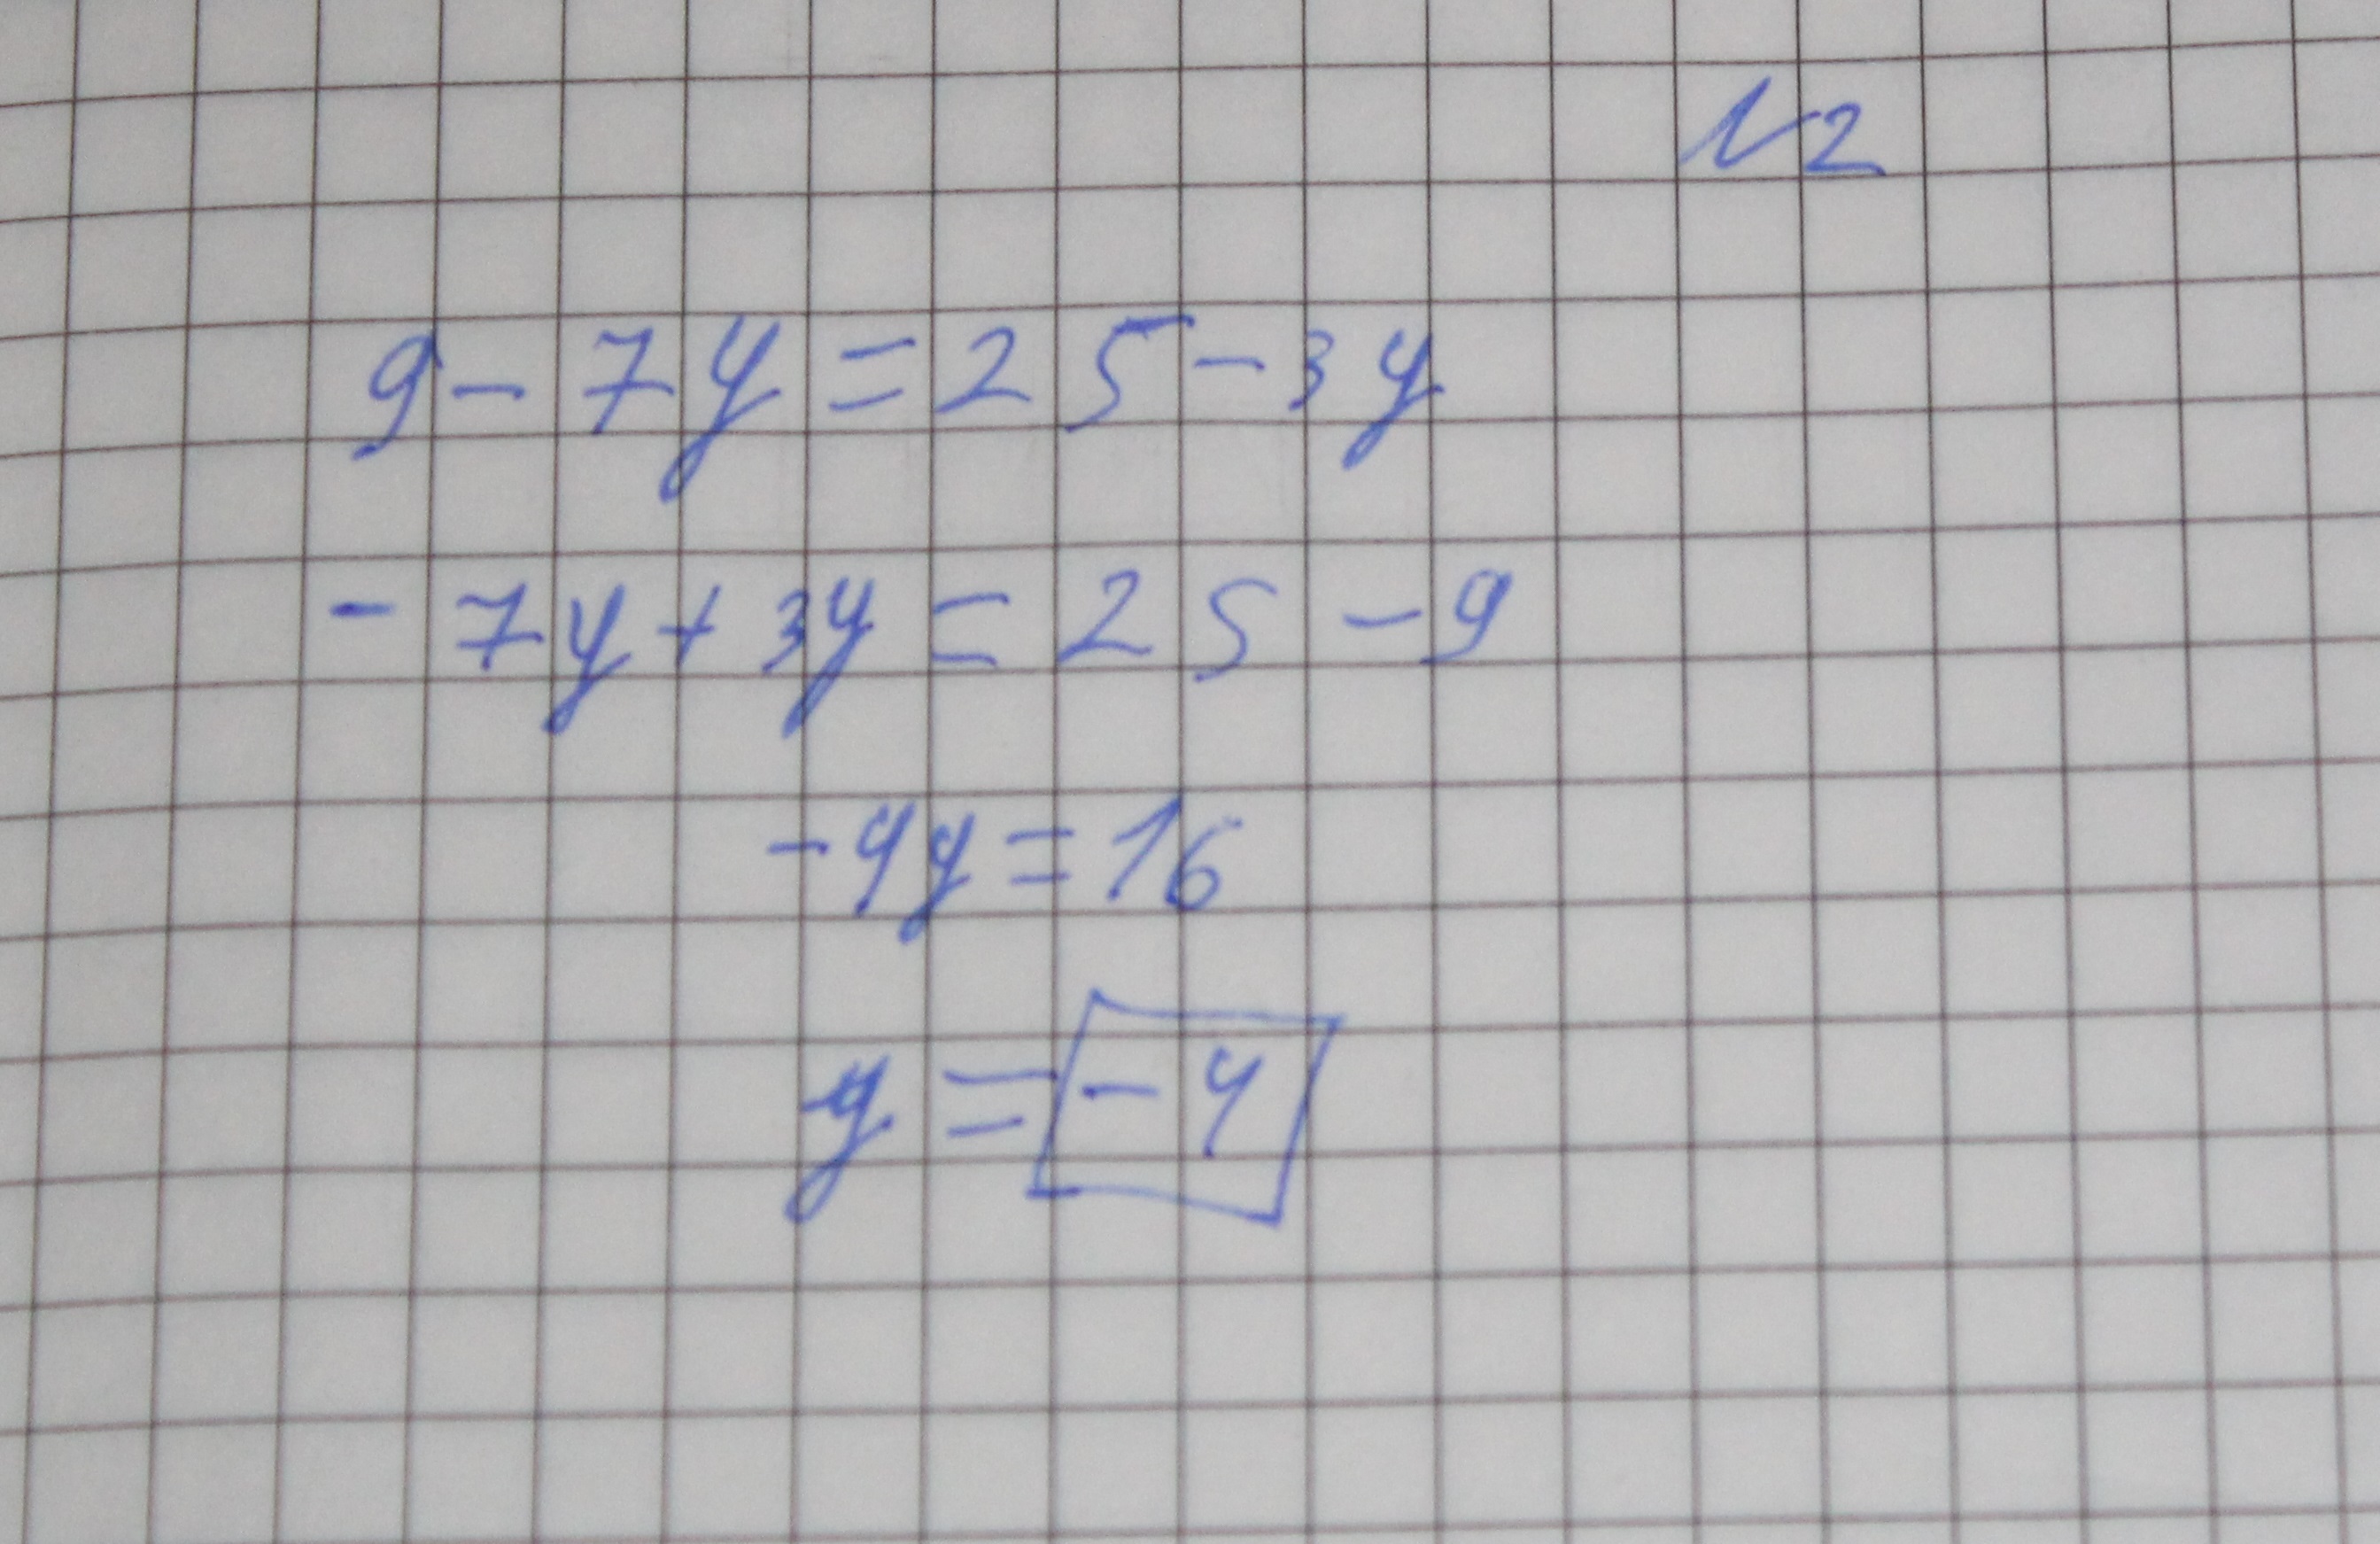 N2
9 - 7y = 25 - 3y
- 7y + 3y = 25 - 9
- 4y = 16
y = - 4